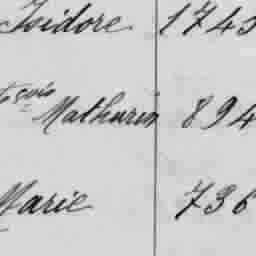 Isidore 1743
Mathurin 894
Marie 736